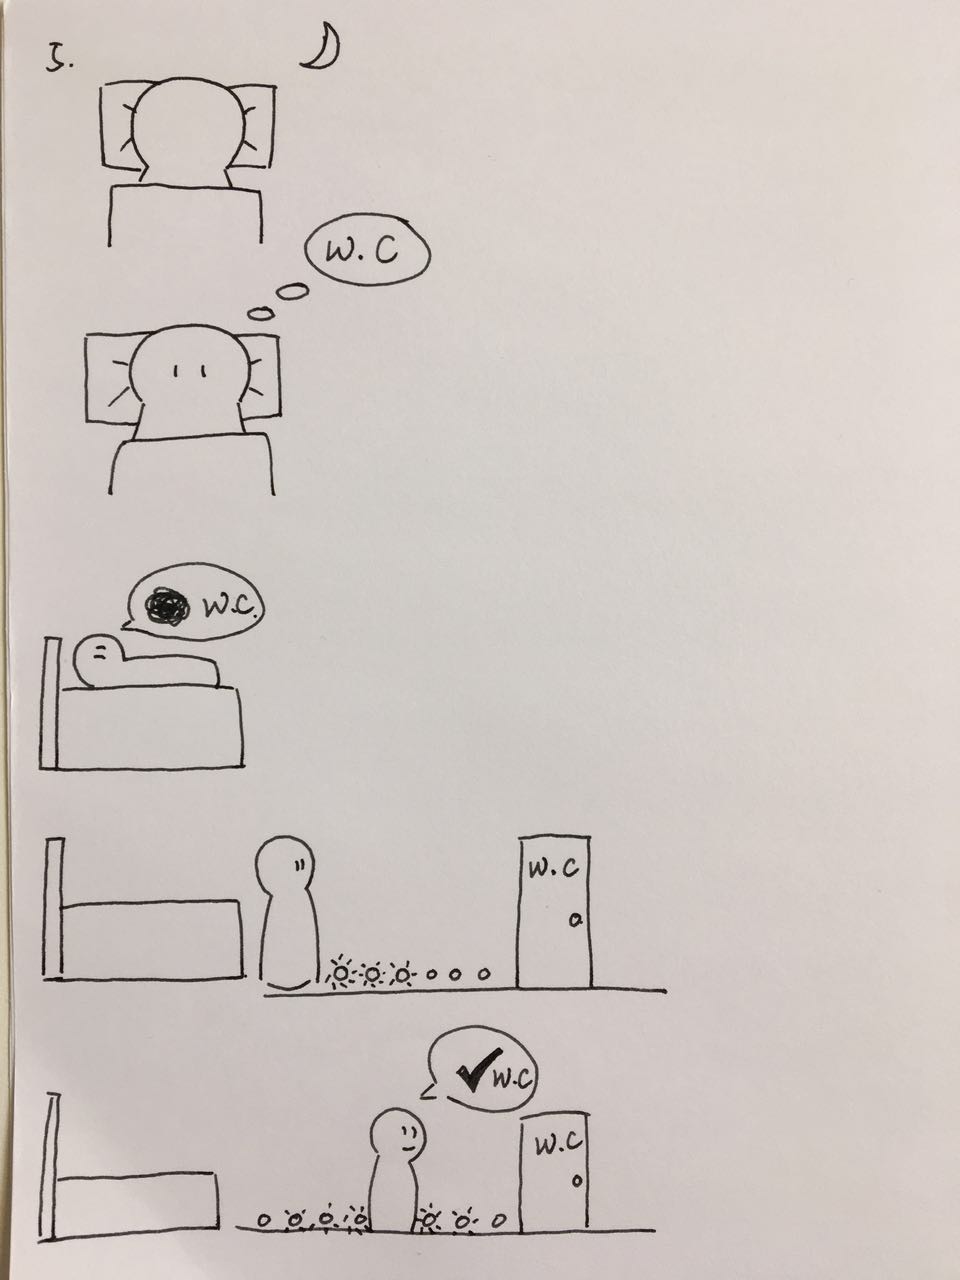 W.C
W.C.
W.C
✔W.C
W.C